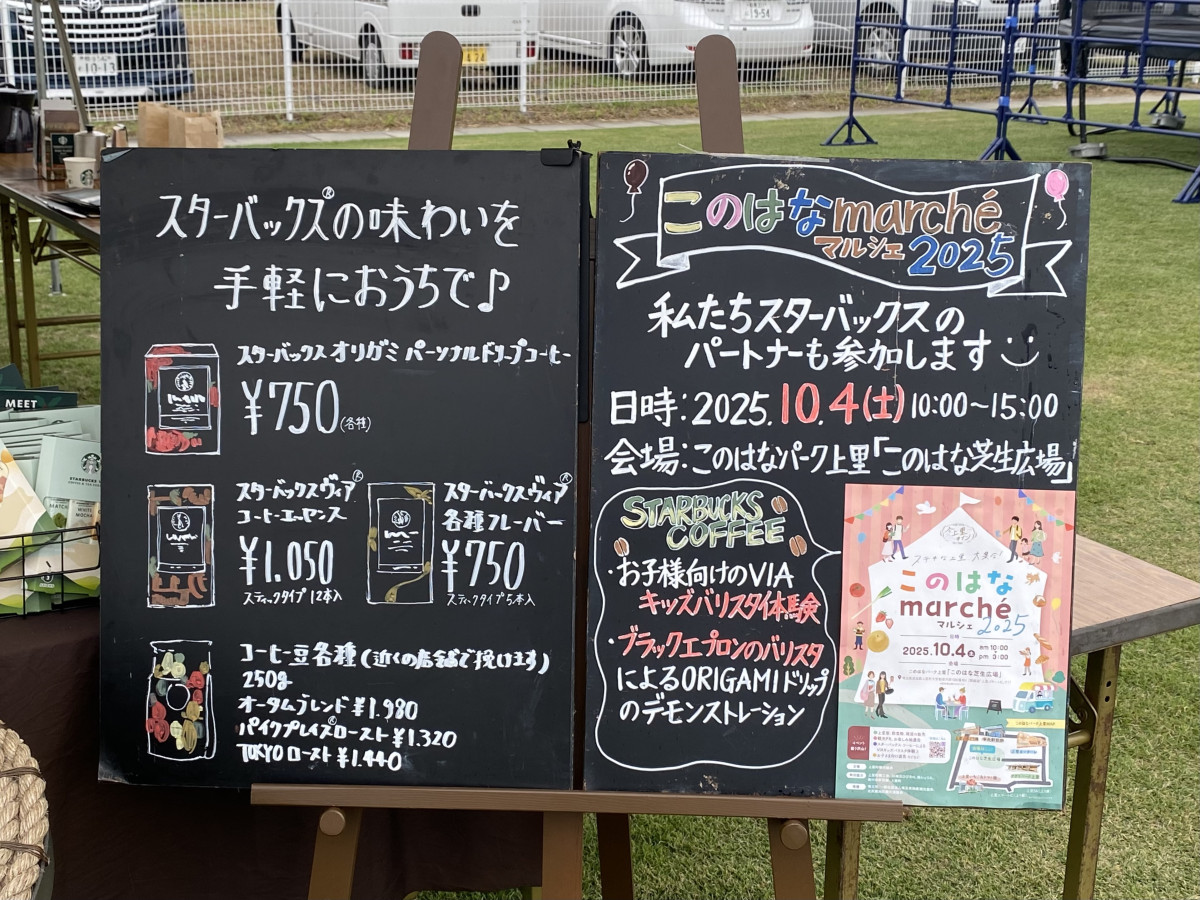 スターバックス®の味わいを
手軽におうちで♪
スターバックス オリガミ パーソナルドリップコーヒー
¥750(各種)
スターバックス ヴィア®
コーヒーエッセンス
¥1,050
スティックタイプ 12本入
スターバックス ヴィア®
各種フレーバー
¥750
スティックタイプ 5本入
コーヒー豆各種(近くの店舗で挽けます)
250g
オータムブレンド ¥1,980
パイクプレイス®ロースト ¥1,320
TOKYO ロースト ¥1,440
このはなmarché
マルシェ 2025
私たちスターバックスの
パートナーも参加します
日時:2025.10.4(土)10:00~15:00
会場:このはなパーク上里「このはな芝生広場」
STARBUCKS
COFFEE
・お子様向けのVIA
キッズバリスタ体験
・ブラックエプロンのバリスタ
によるORIGAMIドリップ
のデモンストレーション
このはな
marché
マルシェ 2025
2025.10.4土 am 10:00
pm 3:00
このはなパーク上里「このはな芝生広場」
MEET
10-13
19-54